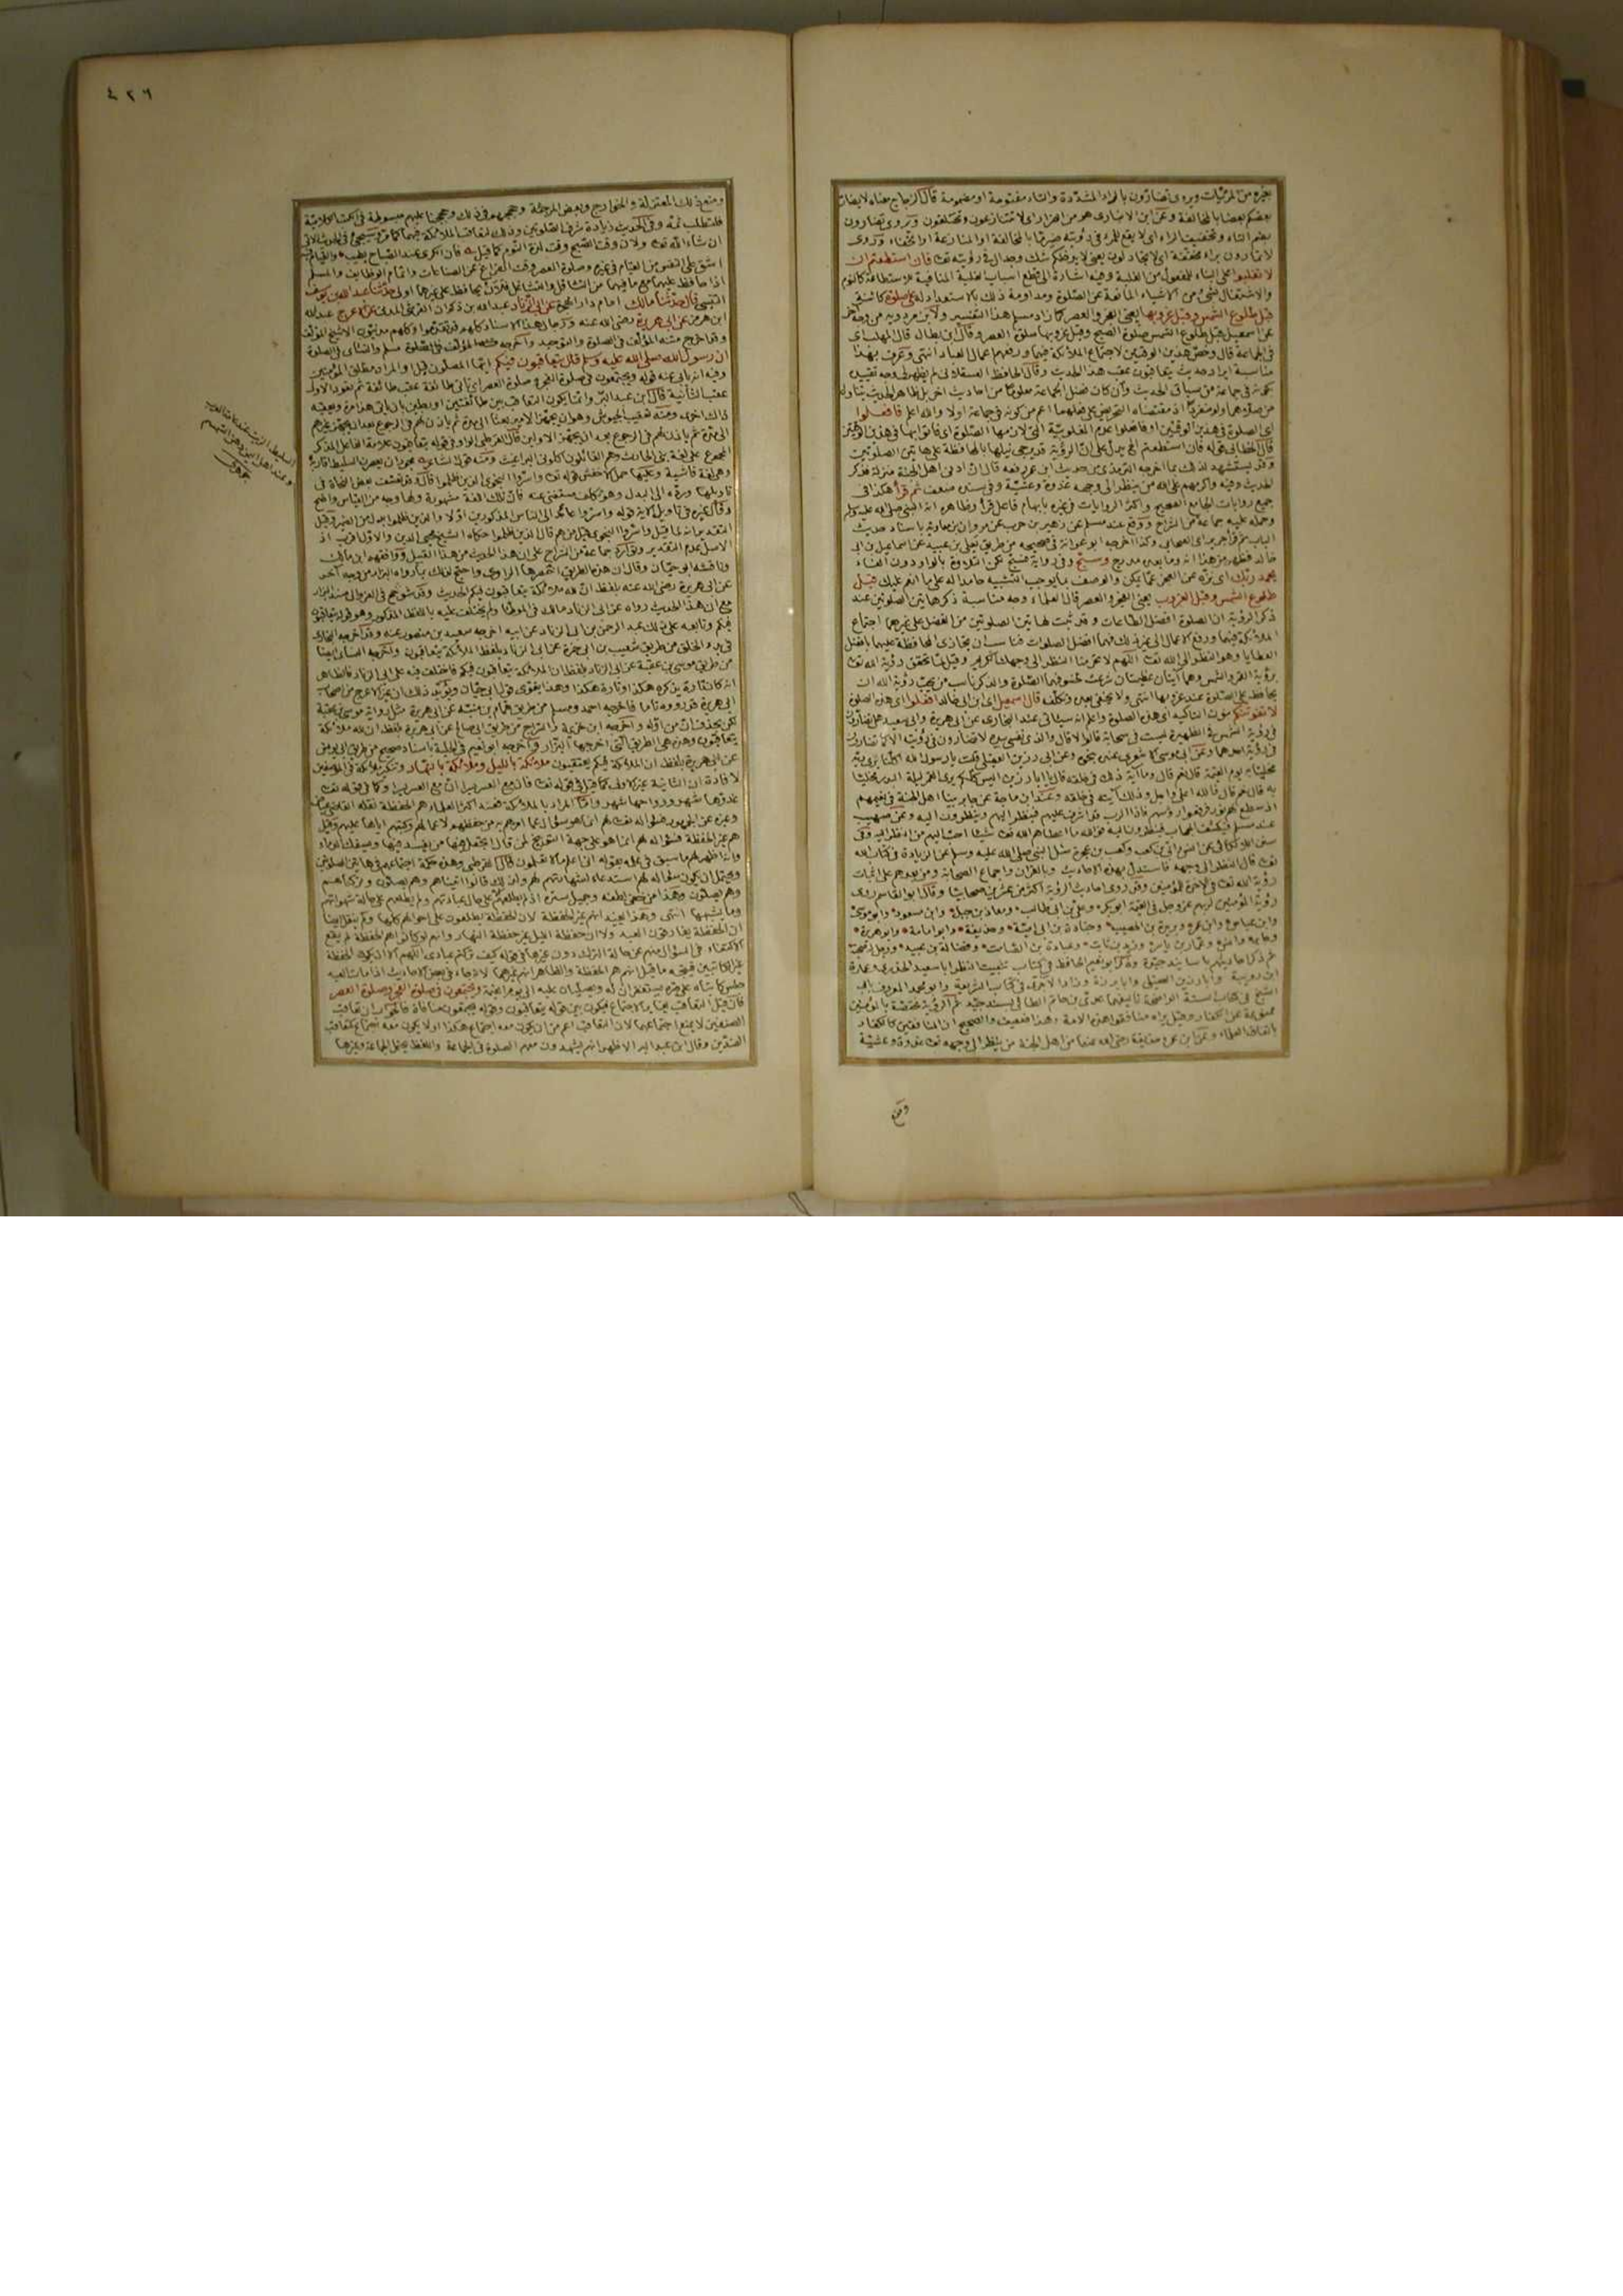 غيره من المرئيات ويروى تضارون بالراء المشددة والتاء مفتوحة او مضمومة قال الزجاج معناه لا يضار
بعضكم بعضا بالمخالفة وعن ابن الانبارى هو من الضرار اى لا تتنازعون وتختلفون وتروى تضارون
بضم التاء وتخفيف الراء اى لا يقع للمرء فى رؤيته ضير ما بالمخالفة او المنازعة او الخفاء وتروى
لا تمارون براء مخففة اى لا تجادلون يعنى لا يدخلكم شك وجدال فى رؤيته تعالى فان استطعتم ان
لا تغلبوا على البناء للمفعول من الغلبة وفيه اشارة الى قطع اسباب الغلبة المنافية للاستطاعة كالنوم
والاشتغال بشئ من الاشياء المانعة عن الصلوة ومداومة ذلك بالاستعداد له على صلوة كائنة
قبل طلوع الشمس وقبل غروبها يعنى الفجر والعصر كما زاد مسلم هذا التفسير ولابن مردويه من وجه آخر
عن اسمعيل قبل طلوع الشمس صلوة الصبح وقبل غروبها صلوة العصر وقال ابن بطال قال المهلب اى
فى الجماعة قال وخص هذين الوقتين لاجتماع الملائكة فيهما ورفعهم اعمال العباد انتهى وعرف بهذا
مناسبة ايراد حديث يتعاقبون عقب هذا الحديث وقال الحافظ العسقلانى لم يظهر لى وجه تقييد
اى الصلوة فى هذين الوقتين
قال الخطابى قوله فان استطعتم الخ يدل على ان الرؤية قد يرجى نيلها بالمحافظة على هاتين الصلوتين
وقد يستشهد لذلك بما اخرجه الترمذى من حديث ابن عمر رفعه قال ان ادنى اهل الجنة منزلة فذكر
الحديث وفيه واكرمهم على الله من ينظر الى وجهه غدوة وعشية وفى سنده ضعف ثم قرأ هكذا فى
جميع روايات الجامع الصحيح واكثر الروايات فى غيره بابهام فاعل قرأ وظاهره انه النبى صلى الله عليه وسلم
وحمله عليه جماعة من الشراح ووقع عند مسلم عن زهير بن حرب عن مروان بن معاوية باسناد حديث
الباب ثم قرأ جرير اى الصحابى وكذا اخرجه ابو عوانة فى صحيحه من طريق يعلى بن عبيد عن اسماعيل بن ابى
خالد فظهر من هذا انه وما بعده مدرج وسبح وفى رواية فسبح لكن التلاوة بالواو دون الفاء
بحمد ربك اى نزه عن العجز عما يمكن والوصف بما يوجب التشبيه حامدا له على ما انعم عليك قبل
طلوع الشمس وقبل الغروب يعنى الفجر والعصر قال العلماء وجه مناسبة ذكر هاتين الصلوتين عند
ذكر الرؤية ان الصلوة افضل الطاعات وقد ثبت لهاتين الصلوتين من الفضل على غيرهما اجتماع
الملائكة فيهما ورفع الاعمال الى غير ذلك فهما افضل الصلوات فناسب ان يجازى المحافظ عليهما بافضل
العطايا وهو النظر الى الله تعالى اللهم لا تحرمنا النظر الى وجهك الكريم وقيل لما تحقق رؤية الله تعالى
برؤية القمر والشمس وهما آيتان عظيمتان شرعت لخسوفهما الصلوة والذكر ناسب من يحب رؤية الله ان
يحافظ على الصلوة عند غروبها انتهى ولا يخفى بعده وتكلفه قال اسمعيل اى ابن ابى خالد افعلوا اى هذه الصلوة
لا تفوتنكم بنون التاكيد اى هذه الصلوة واعلم انه سيأتى عند البخارى عن ابى هريرة وابى سعيد هل تضارون
فى رؤية الشمس فى الظهيرة ليست فى سحابة قالوا لا قال والذى نفسى بيده لا تضارون فى رؤيته الا كما تضارون
فى رؤية احدهما وعن ابى موسى الاشعرى عنده بنحوه وعن ابى رزين العقيلى قلت يا رسول الله اكلنا يرى ربه
مخليا به يوم القيمة قال نعم قال وما آية ذلك فى خلقه قال يا ابا رزين اليس كلكم يرى القمر ليلة البدر مخليا
به قال نعم قال فالله اعلى واجل وذلك آيته فى خلقه وعند ابن ماجة عن جابر بينا اهل الجنة فى نعيمهم
اذ سطع لهم نور فرفعوا رؤسهم فاذا الرب قد اشرف عليهم فينظر اليهم وينظرون اليه وعن صهيب
عند مسلم فيكشف الحجاب فينظرون اليه فوالله ما اعطاهم الله تعالى شيئا احب اليهم من النظر اليه وفى
سنن اللالكائى عن انس وابى بن كعب وكعب بن عجرة سئل النبى صلى الله عليه وسلم عن الزيادة فى كتاب الله
تعالى قال النظر الى وجهه فاستدل بهذه الاحاديث وبالقرآن واجماع الصحابة ومن بعدهم على اثبات
رؤية الله تعالى فى الآخرة للمؤمنين وقد روى احاديث الرؤية اكثر من عشرين صحابيا وقال ابو القاسم روى
رؤية المؤمنين لربهم عز وجل فى القيمة ابو بكر وعلى بن ابى طالب ومعاذ بن جبل وابن مسعود وابو موسى
وابن عباس وابن عمر وبريدة بن الحصيب وجنادة بن ابى امية وحذيفة وابو امامة وابو هريرة
وجابر وانس وعمار بن ياسر وزيد بن ثابت وعبادة بن الصامت وفضالة بن عبيد
ثم ذكر احاديثهم باسانيد جيدة وذكر ابو نعيم الحافظ فى كتاب تثبيت النظر ابا سعيد الخدرى وعمارة
ابن رويبة وابا رزين العقيلى وابا برزة وزاد الآجرى فى كتاب الشريعة وابو محمد المعروف بابى
الشيخ فى كتاب السنة الواضحة تأليفهما عدى بن حاتم الطائى بسند جيد ثم الرؤية مختصة بالمؤمنين
ممنوعة عن الكفار وقيل يراه منافقوا هذه الامة وهذا ضعيف والصحيح ان المنافقين كالكفار
باتفاق العلماء وعن ابن عمر وحذيفة رضى الله عنهما من اهل الجنة من ينظر الى وجهه تعالى غدوة وعشية
ومنع
٤٢٦
ومنع ذلك المعتزلة والخوارج وبعض المرجئة وحججهم فى ذلك وحججنا عليهم مبسوطة فى الكتب الكلامية
فلتطلب ثمه وفى الحديث زيادة شرف الصلوتين وذلك لتعاقب الملائكة فيهما كما مر وسيجئ فى الحديث الآتى
ان شاء الله تعالى ولان وقت الصبح وقت لذة النوم كما قيل فان الكرى عند الصباح يطيب والقيام فيه
اشق على النفس من القيام فى غيره وصلوة العصر وقت الفراغ عن الصناعات واتمام الوظائف والمسلم
اذا حافظ عليهما مع ما فيهما من التثاقل والتشاغل فلان يحافظ على غيرهما اولى حدثنا عبد الله بن يوسف
التنيسى قال حدثنا مالك امام دار الهجرة عن ابى الزناد عبد الله بن ذكوان القرشى المدنى عن الاعرج عبد الله
ابن هرمز عن ابى هريرة رضى الله عنه ورجال هذا الاسناد كلهم قد تقدموا وكلهم مدنيون الا شيخ المؤلف
وقد اخرج متنه المؤلف فى الصلوة والتوحيد واخرجه مسلم والنسائى فى الصلوة
ان رسول الله صلى الله عليه وسلم قال يتعاقبون فيكم ايها المصلون قيل والمراد مطلق المؤمنين
وفيه انه يابى عنه قوله ويجتمعون فى صلوة الفجر وصلوة العصر اى تاتى طائفة عقب طائفة ثم تعود الاولى
عقب الثانية قال ابن عبد البر وانما يكون التعاقب بين طائفتين او رجلين بان ياتى هذا مرة ويعقبه
ذاك اخرى ومنه تعقيب الجيوش وهو ان يجهز الامير بعثا الى مدة ثم ياذن لهم فى الرجوع بعد ان يجهز غيرهم
الى مدة ثم ياذن لهم فى الرجوع بعد ان يجهز الاولين قال القرطبى الواو فى قوله يتعاقبون علامة الفاعل المذكر
المجموع على لغة بنى الحارث وهم القائلون اكلونى البراغيث ومنه قول الشاعر بحوران يعصرن السليط اقاربه
وهى لغة فاشية وعليها حمل الاخفش قوله تعالى واسروا النجوى الذين ظلموا قال وقد تعسف بعض النحاة فى
تاويلها وردها الى البدل وهو تكلف مستغنى عنه فان تلك اللغة مشهورة ولها وجه من القياس واضح
وقال غيره فى تاويل الآية قوله واسروا عائد الى الناس المذكورين اولا والذين ظلموا بدل من الضمير وقيل
التقدير انه لما قيل واسروا النجوى قيل من هم قال الذين ظلموا حكاه الشيخ محيى الدين والاول اقرب اذ
الاصل عدم التقدير وتوارد جماعة من الشراح على ان هذا الحديث من هذا القبيل ووافقهم ابن مالك
وناقشه ابو حيان وقال ان هذه الطريق اختصرها الراوى واحتج لذلك بما رواه البزار من وجه آخر
عن ابى هريرة رضى الله عنه بلفظ ان لله ملائكة يتعاقبون فيكم الحديث وقد شوحح فى العزو الى مسند البزار
مع ان هذا الحديث رواه عن ابى الزناد مالك فى الموطأ ولم يختلف عليه باللفظ المذكور وهو قوله يتعاقبون
فيكم وتابعه على ذلك عبد الرحمن بن ابى الزناد عن ابيه اخرجه سعيد بن منصور عنه وقد اخرجه البخارى
فى بدء الخلق من طريق شعيب بن ابى حمزة عن ابى الزناد بلفظ الملائكة يتعاقبون واخرجه النسائى ايضا
من طريق موسى بن عقبة عن ابى الزناد بلفظ ان الملائكة يتعاقبون فيكم فاختلف فيه على ابى الزناد فالظاهر
انه كان تارة يذكره هكذا وتارة هكذا وهذا يقوى قول ابى حيان ويؤيد ذلك ان غير الاعرج من اصحاب
ابى هريرة قد رووه تاما فاخرجه احمد ومسلم من طريق همام بن منبه عن ابى هريرة مثل رواية موسى بن عقبة
لكن بحذف ان من اوله واخرجه ابن خزيمة والسراج من طريق ابى صالح عن ابى هريرة بلفظ ان لله ملائكة
يتعاقبون وهذه هى الطريق التى اخرجها البزار واخرجه ابو نعيم فى الحلية باسناد صحيح من طريق ابى يونس
عن ابى هريرة بلفظ ان الملائكة فيكم يعتقبون ملائكة بالليل وملائكة بالنهار وتنكير ملائكة فى الموضعين
لافادة ان الثانية غير الاولى كما قيل فى قوله تعالى فان مع العسر يسرا ان مع العسر يسرا وكما فى قوله تعالى
غدوها شهر ورواحها شهر واما المراد بالملائكة فعند اكثر العلماء هم الحفظة نقله القاضى عياض
هم غير الحفظة فسؤاله لهم انما هو على جهة التوبيخ لمن قال اتجعل فيها من يفسد فيها ويسفك الدماء
وانه اظهر لهم ما سبق فى علمه بقوله انى اعلم ما لا تعلمون قال القرطبى وهذه حكمة اجتماعهم فى هاتين الصلوتين
ويحتمل ان يكون سؤاله لهم استدعاء لشهادتهم لهم ولذلك قالوا اتيناهم وهم يصلون وتركناهم
وهم يصلون وهذا من خفى لطفه وجميل ستره اذ لم يطلعهم على حال عباداتهم ولم يطلعهم على حالة شهواتهم
وما يشبهها انتهى وهذا يعينه انهم غير الحفظة لان الحفظة يطلعون على احوالهم كلها ولم ينقل ايضا
ان الحفظة يفارقون العبد ولا ان حفظة الليل غير حفظة النهار وانهم لو كانوا هم الحفظة لم يقع
الاكتفاء فى السؤال منهم عن حالة الترك دون غيرها فى قوله كيف تركتم عبادى اللهم الا ان يكون الحفظة
غير الكاتبين
على قبره يستغفران له ويصليان عليه الى يوم القيمة ويجتمعون فى صلوة الفجر وصلوة العصر
فان قيل التعاقب يغاير الاجتماع فيكون بين قوله يتعاقبون وقوله يجتمعون منافاة فالجواب ان تعاقب
الصنفين لا يمنع اجتماعهما لان التعاقب اعم من ان يكون معه اجتماع هكذا او لا يكون معه اجتماع كتعاقب
الضدين وقال ابن عبد البر الاظهر انهم يشهدون معهم الصلوة فى الجماعة واللفظ يحتمل الجماعة وغيرها
السليط الزيت عند عامة العرب
وعند اهل اليمن دهن السمسم
جوهرى